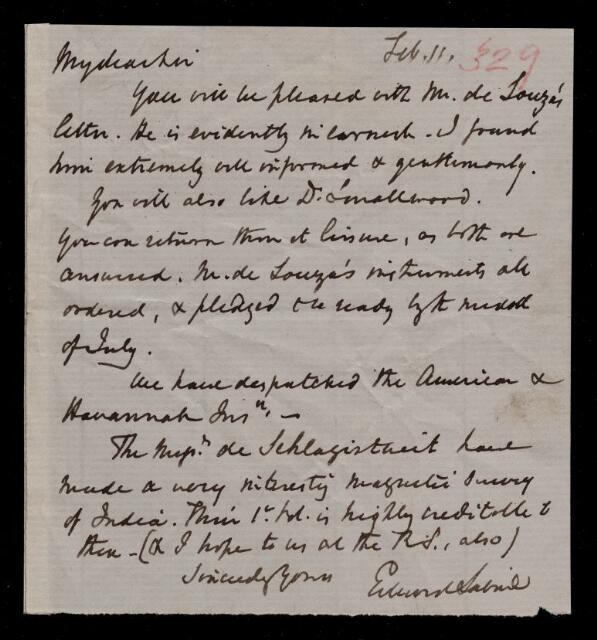 Feb. 11. 329
My dear Sir
You will be pleased with Mr. de Souza's
letter. He is evidently in earnest. I found
him extremely well informed & gentlemanly.
You will also like Dr. Smallwood.
You can return them at leisure, as both are
answered. Mr. de Souza's instruments all
ordered, & pledged to be ready by the middle
of July.
We have despatched the American &
Havannah Insts. —
The Messrs. de Schlagintweit have
made a very interestg magnetic Survey
of India. Their 1st Vol. is highly creditable to
them – (& I hope to us at the R.S., also)
Sincerely Yours
Edward Sabine